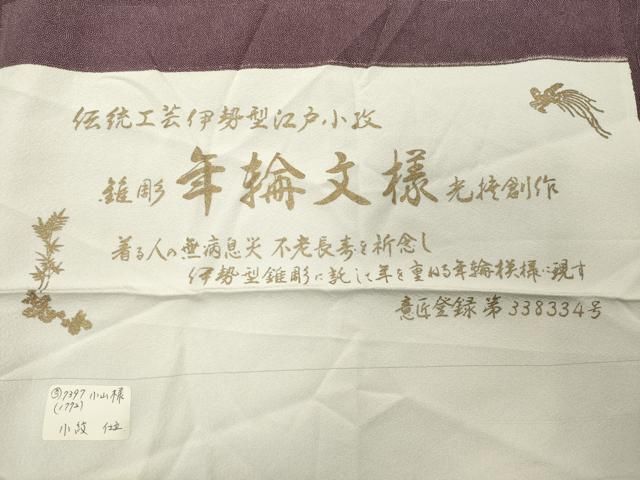 伝統工芸伊勢型江戸小紋
錐彫 年輪文様 光捶創作
着る人の無病息災 不老長寿を祈念し
伊勢型錐彫に託して年を重ねる年輪模様に現す
意匠登録第338334号
③7397 小山様
(1772)
小紋 仕立